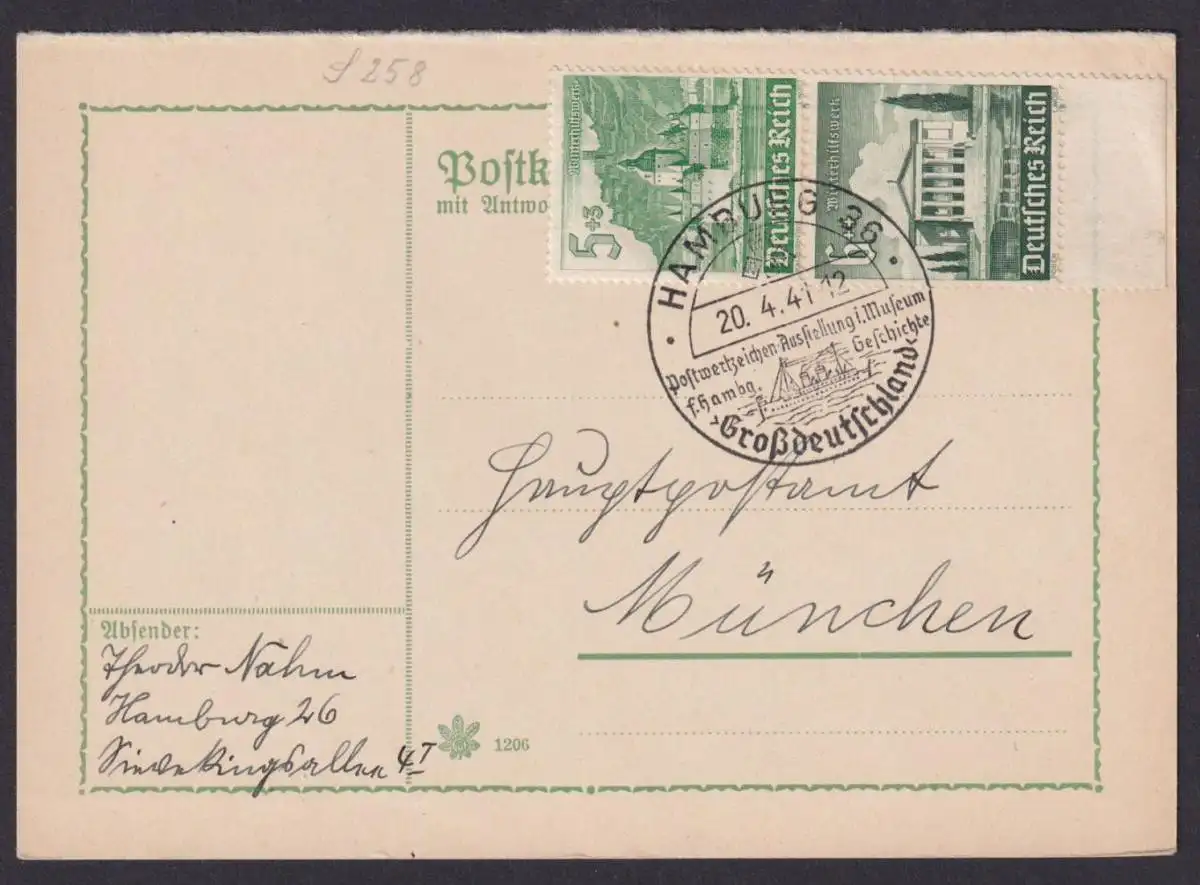 S 258
Postk
mit Antwo
Winterhilfswerk
5+3
Deutsches Reich
Winterhilfswerk
6
Deutsches Reich
HAMBURG 36
20. 4. 41 12
Postwertzeichen-Ausstellung i. Museum
f. Hambg. Geschichte
Großdeutschland
Hauptpostamt
München
Absender:
Theodor Nahm
Hamburg 26
Sievekingsallee 4 I
1206